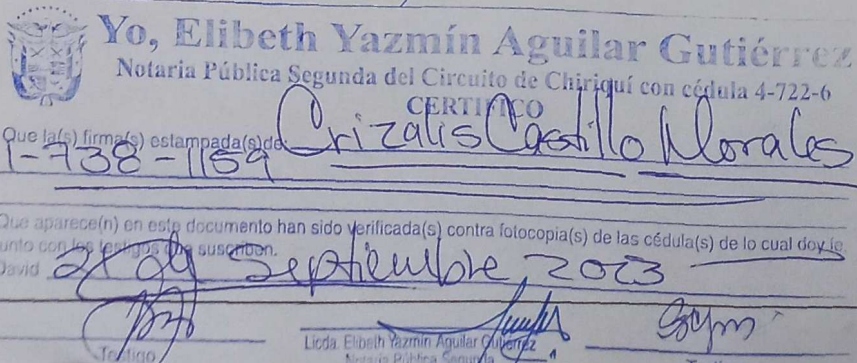 Yo, Elibeth Yazmín Aguilar Gutiérrez
Notaria Pública Segunda del Circuito de Chiriquí con cédula 4-722-6
CERTIFICO
Que la(s) firma(s) estampada(s) de Crizalis Castillo Morales
1-738-1159
Que aparece(n) en este documento han sido verificada(s) contra fotocopia(s) de las cédula(s) de lo cual doy fe,
junto con los testigos que suscriben.
David Septiembre, 2023
Testigo Licda. Elibeth Yazmín Aguilar Gutiérrez
Notaria Pública Segunda